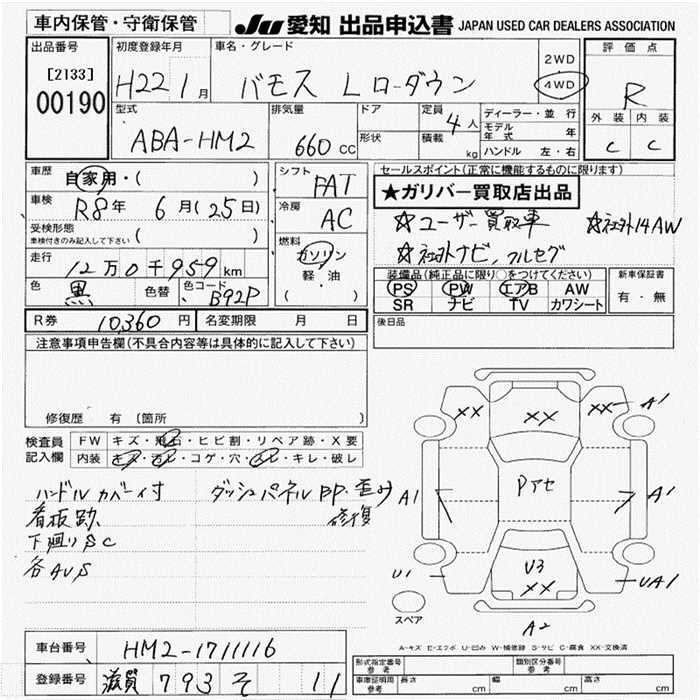 車内保管・守衛保管
JU 愛知 出品申込書 JAPAN USED CAR DEALERS ASSOCIATION
出品番号
[2133]
00190
初度登録年月
H22 1月
車名・グレード
バモス L ローダウン
2WD
4WD
評価点
R
外装 内装
C C
型式
ABA-HM2
排気量
660 cc
ドア
形状
定員
4人
積載
kg
ディーラー・並行
モデル年式 年
ハンドル 左・右
車歴
自家用・( )
車検
R8年 6月(25日)
受検形態
車検付きのみ記入して下さい ( )
走行
12万0千959km
色
黒
色替
色コード
B92P
シフト
FAT
冷房
AC
燃料
ガソリン
軽・油
( )
セールスポイント(正常に機能するものに限ります)
★ガリバー買取店出品
☆ユーザー買取車 ☆社外14AW
☆社外ナビ、フルセグ
装備品(純正品に限り○をつけてください)
PS PW エアB AW
SR ナビ TV カワシート
新車保証書
有・無
R券 10,360円
名変期限 月 日
後日品
注意事項申告欄(不具合内容等は具体的に記入して下さい)
修復歴 有 〔箇所
検査員記入欄
FW キズ・飛石・ヒビ割・リペア跡・X要
内装 キズ・汚レ・コゲ・穴・スレ・キレ・破レ
ハンドルカバー付 ダッシュパネルBP・歪み
看板跡 修復
下廻りSC
各AUS
XX XX XX A1
Pアセ
A1 A1
U3
XX
U1 UA1
A2
スペア
A-キズ E-エクボ U-凹み W-補修跡 S-サビ C-腐食 XX-交換済
車台番号 HM2-1711116
登録番号 滋賀 793 そ 11
形式指定番号 参考
類別区分番号 参考
車庫証明用 参考 長さ cm 幅 cm 高さ cm